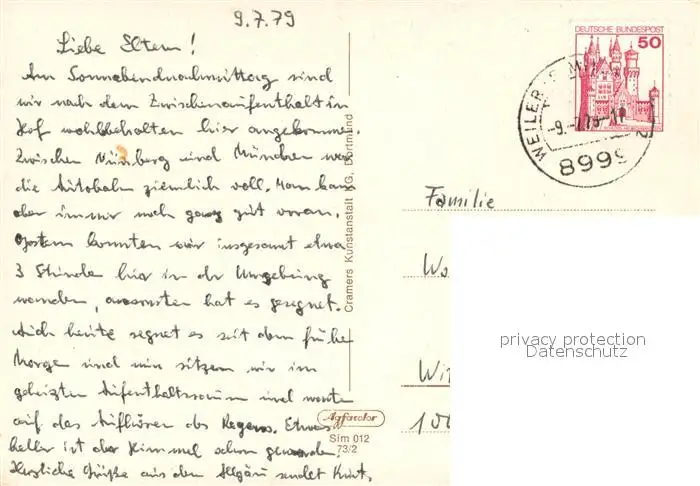 9.7.79
Liebe Eltern!
Am Sonnabendnachmittag sind
wir nach dem Zwischenaufenthalt in
Hof wohlbehalten hier angekommen.
Zwischen Nürnberg und München war
die Autobahn ziemlich voll. Man kam
aber immer noch ganz gut voran.
Gestern konnten wir insgesamt etwa
3 Stunden hier in der Umgebung
wandern, ansonsten hat es geregnet.
Auch heute regnet es seit dem frühe
Morgen und nun sitzen wir im
geheizten Aufenthaltsraum und warten
auf das Aufhören des Regens. Etwas
heller ist der Himmel schon geworden.
Herzliche Grüße aus dem Allgäu sendet Kurt.
Cramers Kunstanstalt KG, Dortmund
Agfacolor
Sim 012
73/2
DEUTSCHE BUNDESPOST
50
WEILER-SIM
-9.-7.79-
8999
Familie
Wo
privacy protection
Datenschutz
Wit
100